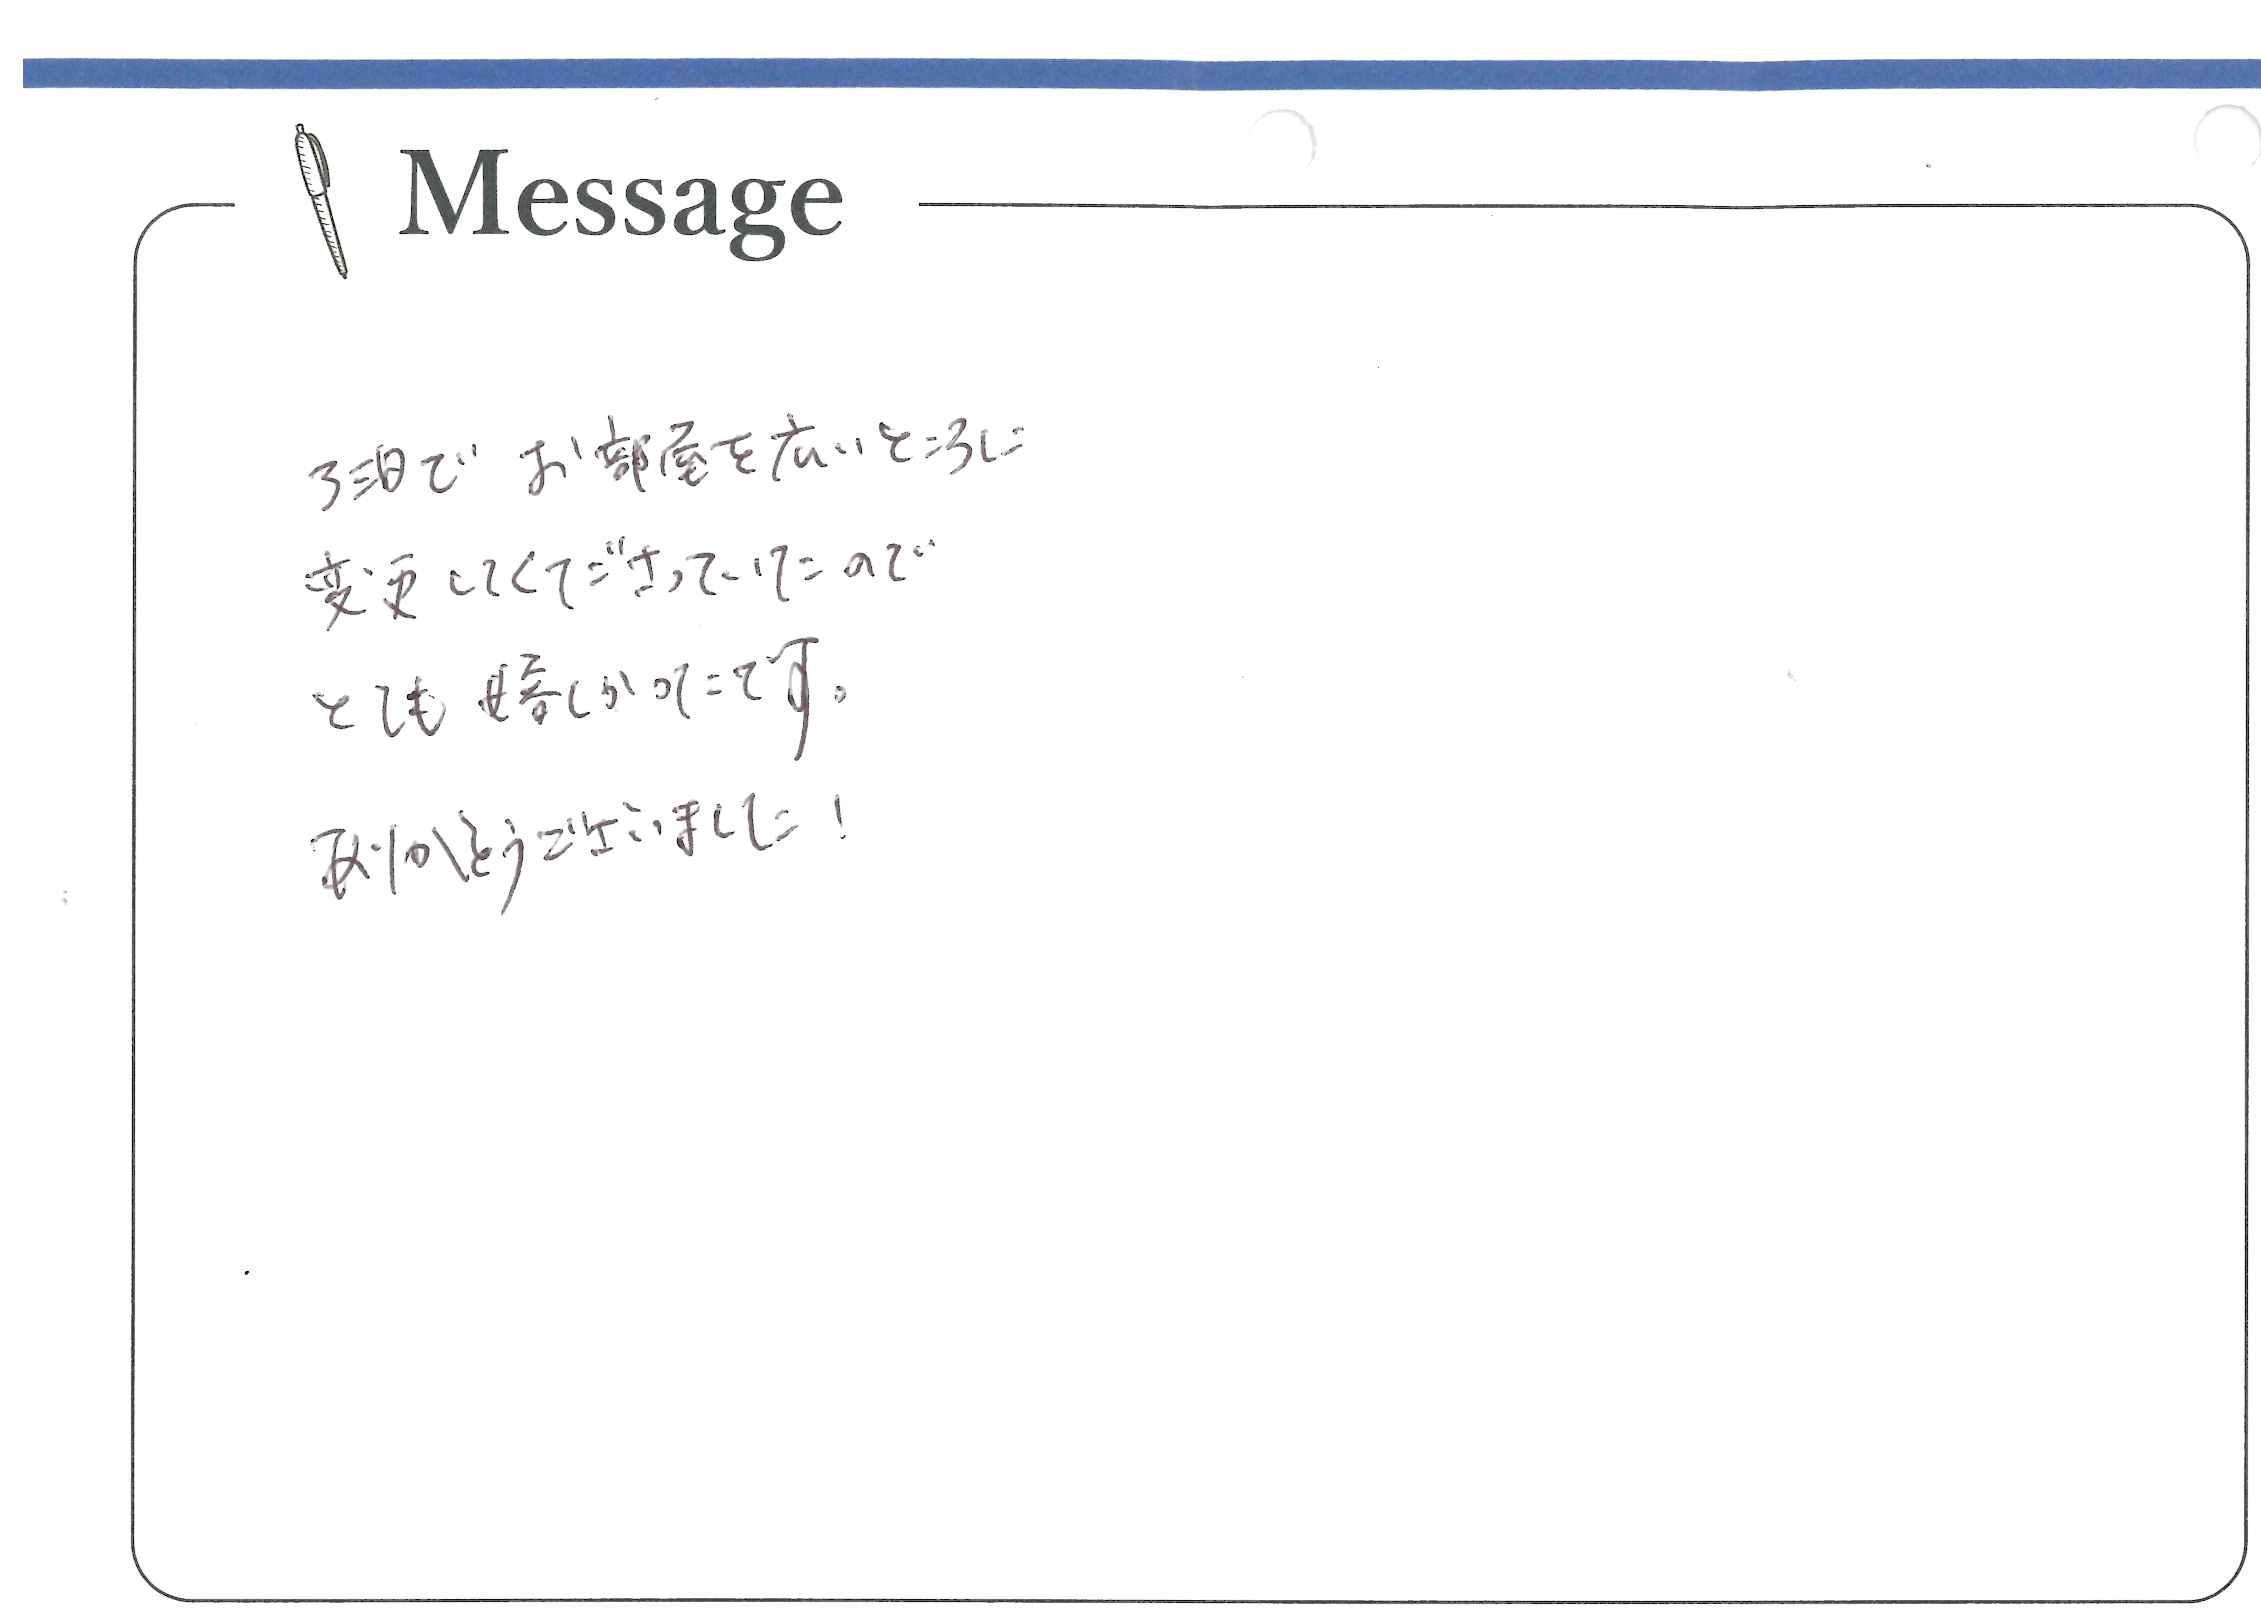 Message
3泊でお部屋を広いところに
変更してくださっていたので
とても嬉しかったです。
有りがとうございました！